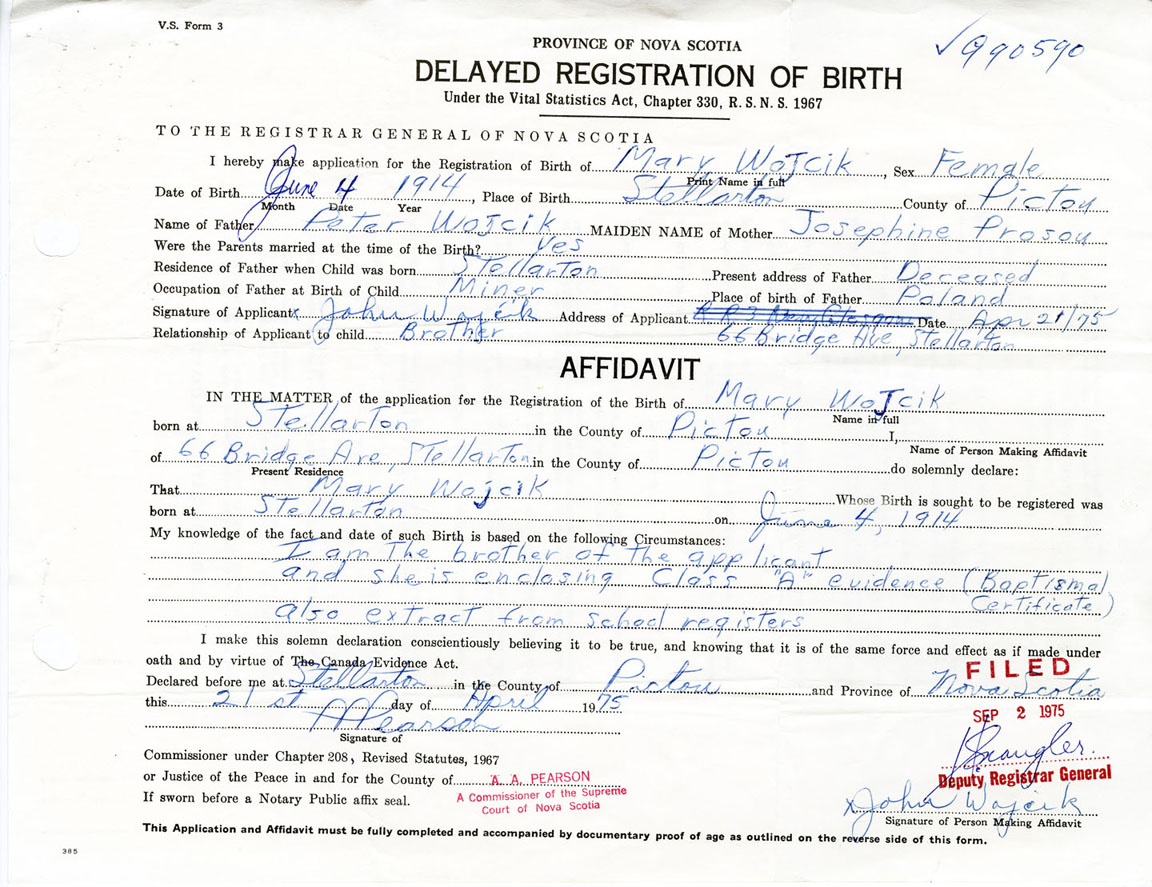 V.S. Form 3
990590
PROVINCE OF NOVA SCOTIA
DELAYED REGISTRATION OF BIRTH
Under the Vital Statistics Act, Chapter 330, R.S.N.S. 1967
TO THE REGISTRAR GENERAL OF NOVA SCOTIA
I hereby make application for the Registration of Birth of Mary Wojcik, Sex Female
Print Name in full
Date of Birth June 4 1914, Place of Birth Stellarton County of Pictou
Month Date Year
Name of Father Peter Wojcik MAIDEN NAME of Mother Josephine Prosou
Were the Parents married at the time of the Birth? Yes
Residence of Father when Child was born Stellarton Present address of Father Deceased
Occupation of Father at Birth of Child Miner Place of birth of Father Poland
Signature of Applicant x John Wojcik Address of Applicant Date Apr 21/75
Relationship of Applicant to child Brother 66 Bridge Ave, Stellarton
AFFIDAVIT
IN THE MATTER of the application for the Registration of the Birth of Mary Wojcik
Name in full
born at Stellarton in the County of Pictou I,
Name of Person Making Affidavit
of 66 Bridge Ave, Stellarton in the County of Pictou do solemnly declare:
Present Residence
That Mary Wojcik Whose Birth is sought to be registered was
born at Stellarton on June 4, 1914
My knowledge of the fact and date of such Birth is based on the following Circumstances:
I am the brother of the applicant
and she is enclosing Class "A" evidence (Baptismal
Certificate)
also extract from school registers
I make this solemn declaration conscientiously believing it to be true, and knowing that it is of the same force and effect as if made under
oath and by virtue of The Canada Evidence Act.
FILED
Declared before me at Stellarton in the County of Pictou and Province of Nova Scotia
this 21st day of April 1975
SEP 2 1975
A Pearson
Signature of
Commissioner under Chapter 208, Revised Statutes, 1967
or Justice of the Peace in and for the County of A. A. PEARSON
Deputy Registrar General
If sworn before a Notary Public affix seal.
A Commissioner of the Supreme
Court of Nova Scotia
x John Wojcik
Signature of Person Making Affidavit
This Application and Affidavit must be fully completed and accompanied by documentary proof of age as outlined on the reverse side of this form.
385